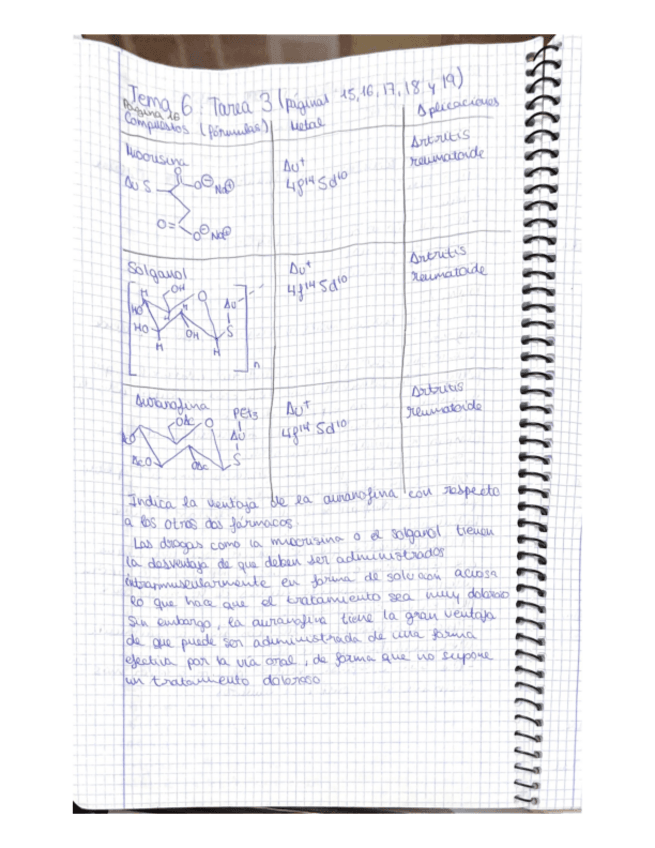 Tema 6. Tarea 3 (páginas 15, 16, 17, 18 y 19)
Página 16
Compuestos (fórmulas) Metal Aplicaciones
Miocrisina Au⁺ Artritis
4f¹⁴ 5d¹⁰ reumatoide
Au S O⊖ Na⊕
O
O= O⊖ Na⊕
Solganol Au⁺ Artritis
4f¹⁴ 5d¹⁰ reumatoide
H OH O Au
HO H
HO OH S
H H n
Auranofina Au⁺ Artritis
4f¹⁴ 5d¹⁰ reumatoide
OAc O PEt₃
Au
AcO OAc S
Indica la ventaja de la auranofina con respecto
a los otros dos fármacos
Las drogas como la miocrisina o el solganol tienen
la desventaja de que deben ser administrados
intramuscularmente en forma de solución acuosa
lo que hace que el tratamiento sea muy doloroso
Sin embargo, la auranofina tiene la gran ventaja
de que puede ser administrada de una forma
efectiva por la vía oral, de forma que no supone
un tratamiento doloroso